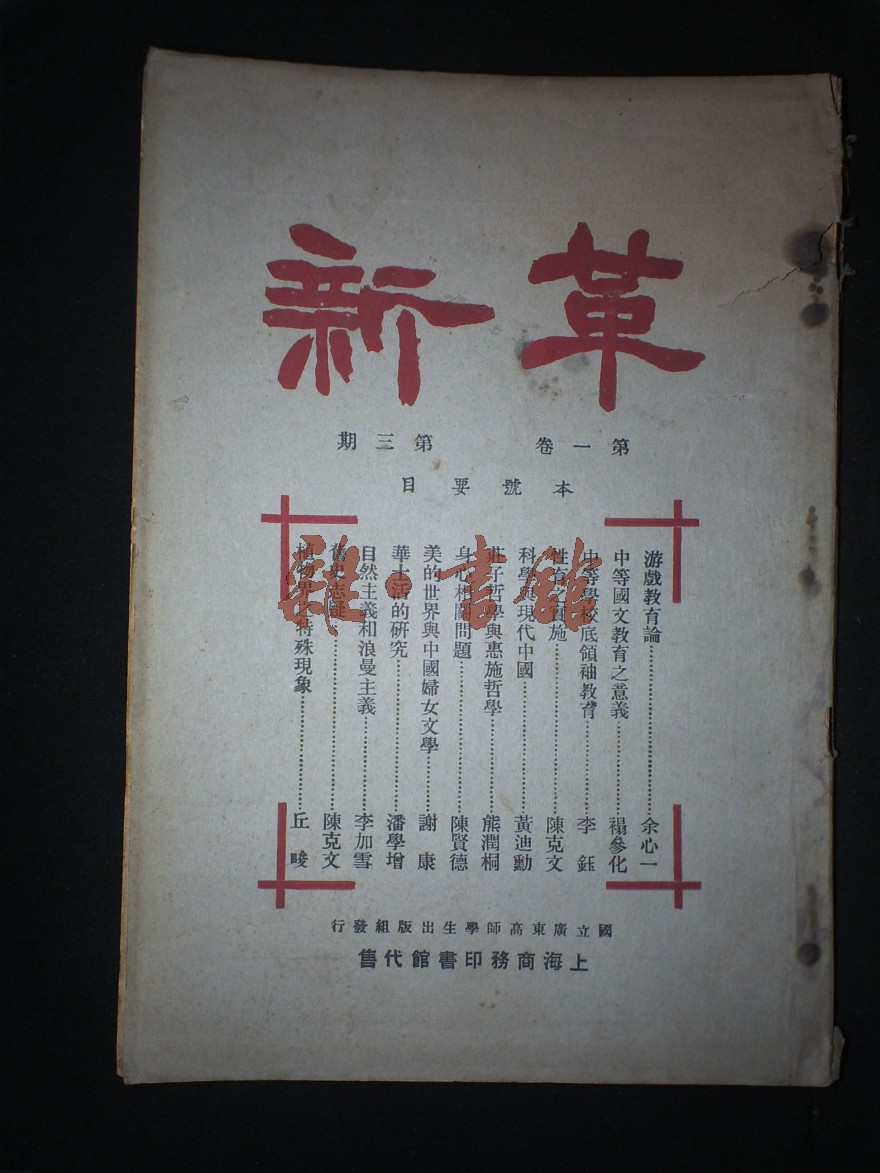 革新
第一卷 第三期
本號要目
游戲教育論……余心一
中等國文教育之意義……禤參化
中等學校底領袖教育……李鈺
性育之實施……陳克文
科學與現代中國……黃迪勳
莊子哲學與惠施哲學……熊潤桐
身心相關問題……陳賢德
美的世界與中國婦女文學……謝康
華士活的研究……潘學增
自然主義和浪曼主義……李加雪
舊史志疑……陳克文
植物界之特殊現象……丘畯
國立廣東高師學生出版組發行
上海商務印書館代售
雜·書館